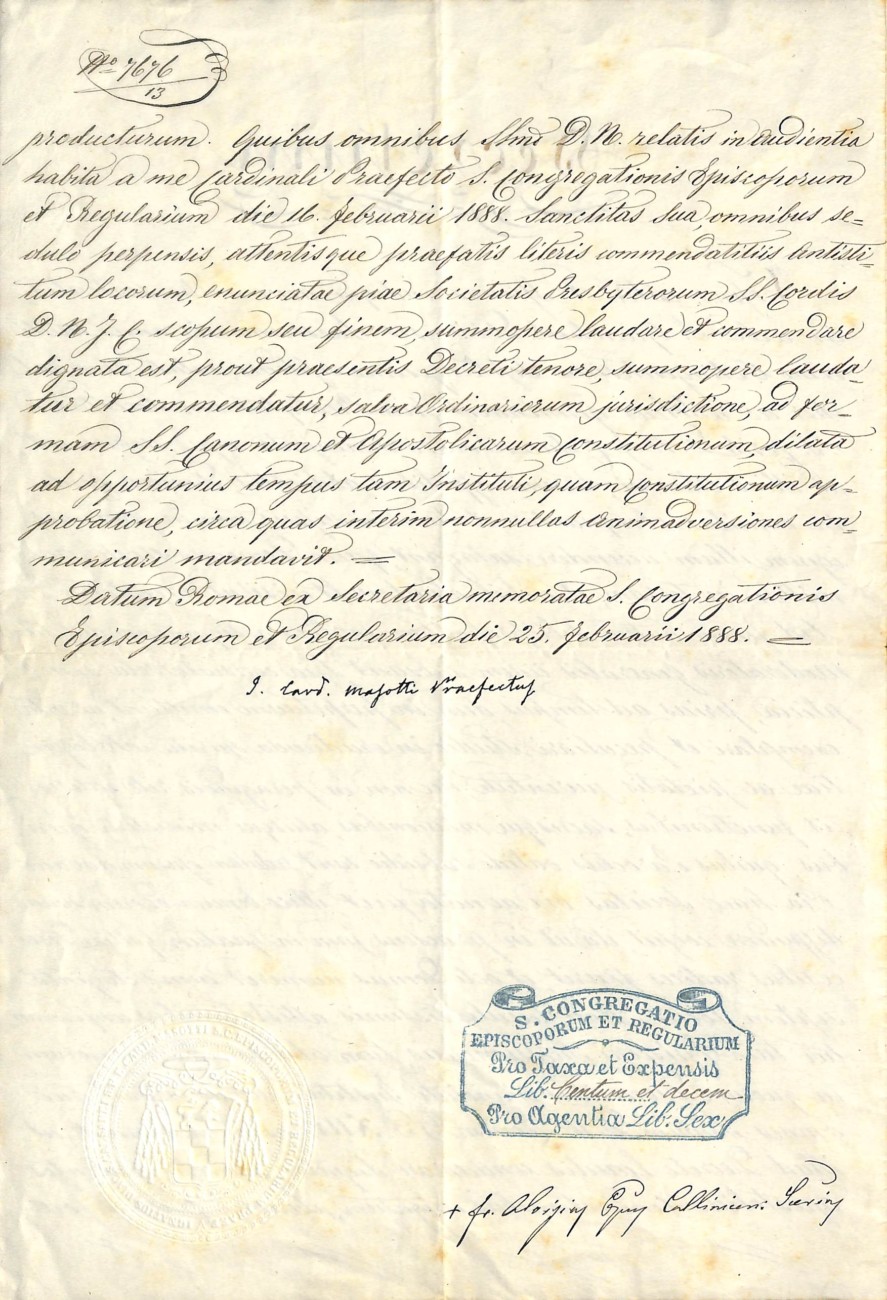 No 7676
13
producturum. Quibus omnibus SSmo D. N. relatis in audientia
habita a me Cardinali Praefecto S. Congregationis Episcoporum
et Regularium die 16. Februarii 1888. Sanctitas Sua, omnibus se=
dulo perpensis, attentisque praefatis literis commendatitiis Antisti=
tum locorum, enunciatae piae Societatis Presbyterorum SS. Cordis
D. N. J. C. scopum seu finem, summopere laudare et commendare
dignata est, prout praesentis Decreti tenore, summopere lauda=
tur et commendatur, salva Ordinariorum jurisdictione, ad for=
mam SS. Canonum et Apostolicarum Constitutionum, dilata
ad opportunius tempus tam Instituti, quam Constitutionum ap=
probatione, circa quas interim nonnullas animadversiones com=
municari mandavit. =
Datum Romae ex Secretaria memoratae S. Congregationis
Episcoporum et Regularium die 25. Februarii 1888. =
I. Card. Masotti Praefectus
S. CONGREGATIO
EPISCOPORUM ET REGULARIUM
Pro Taxa et Expensis
Lib. Centum et decem
Pro Agentia Lib. Sex
+ fr. Aloisius Epus Callinicen: Secrius